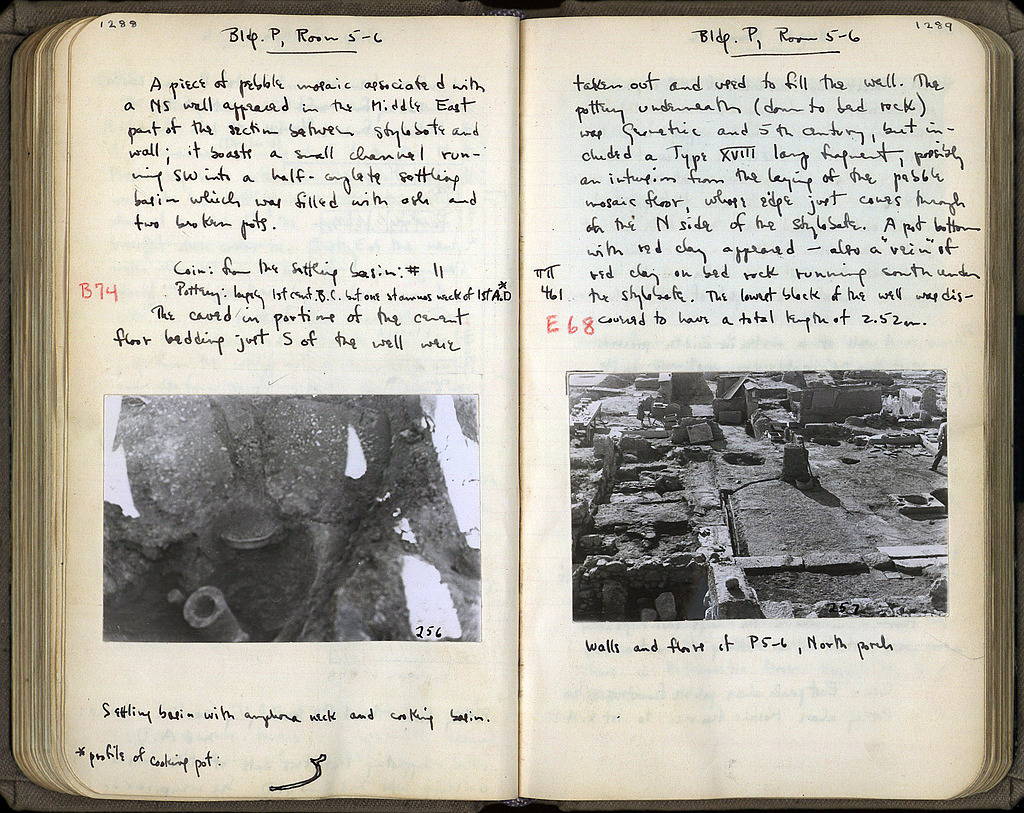 1288
Bldg. P, Room 5-6
A piece of pebble mosaic associated with
a NS wall appeared in the Middle East
part of the section between stylobate and
wall; it boasts a small channel run-
ning SW into a half-complete settling
basin which was filled with ash and
two broken pots.
Coin: from the settling basin: # 11
B74
Pottery: largely 1st cent. B.C. but one stamnos neck of 1st A.D.*
The caved in portions of the cement
floor bedding just S of the well were
256
Settling basin with amphora neck and cooking basin.
*profile of cooking pot:
1289
Bldg. P, Room 5-6
taken out and used to fill the well. The
pottery underneath (down to bed rock)
was Geometric and 5th century, but in-
cluded a Type XVIII lamp fragment, possibly
an intrusion from the laying of the pebble
mosaic floor, whose edge just comes through
on the N side of the stylobate. A pot bottom
with red clay appeared – also a "vein" of
red clay on bed rock running south under
461
the stylobate. The lowest block of the well was dis-
E68
covered to have a total length of 2.52m.
257
Walls and floors at P5-6, North porch